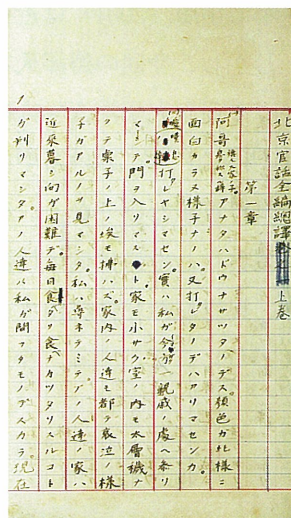 1
北京官話全編總譯 上巻
第一章
阿哥 アナタハドウナサツタノデス。顔色ガ此様ニ
面白カラヌ様子ナノハ。又打レタノデハアリマセンカ。
打レヤシマセン。實ハ私ガ今 親戚ノ處ヘ参リ
マシテ。門ヲ入リマスト。家モ小サク室ノ内モ太層穢ナ
クテ案子ノ上ノ埃モ拂ハズ。家内ノ人達モ都 哀泣ノ様
子ガアルノヲ見マシタ。私ハ尋ネ 人達ノ家ハ
近來暮シ向ガ困難デ。毎日食タリ食ナカツタリスルコト
ガ判リマシタ。アノ人達ハ私ガ モノデスカラ。現在